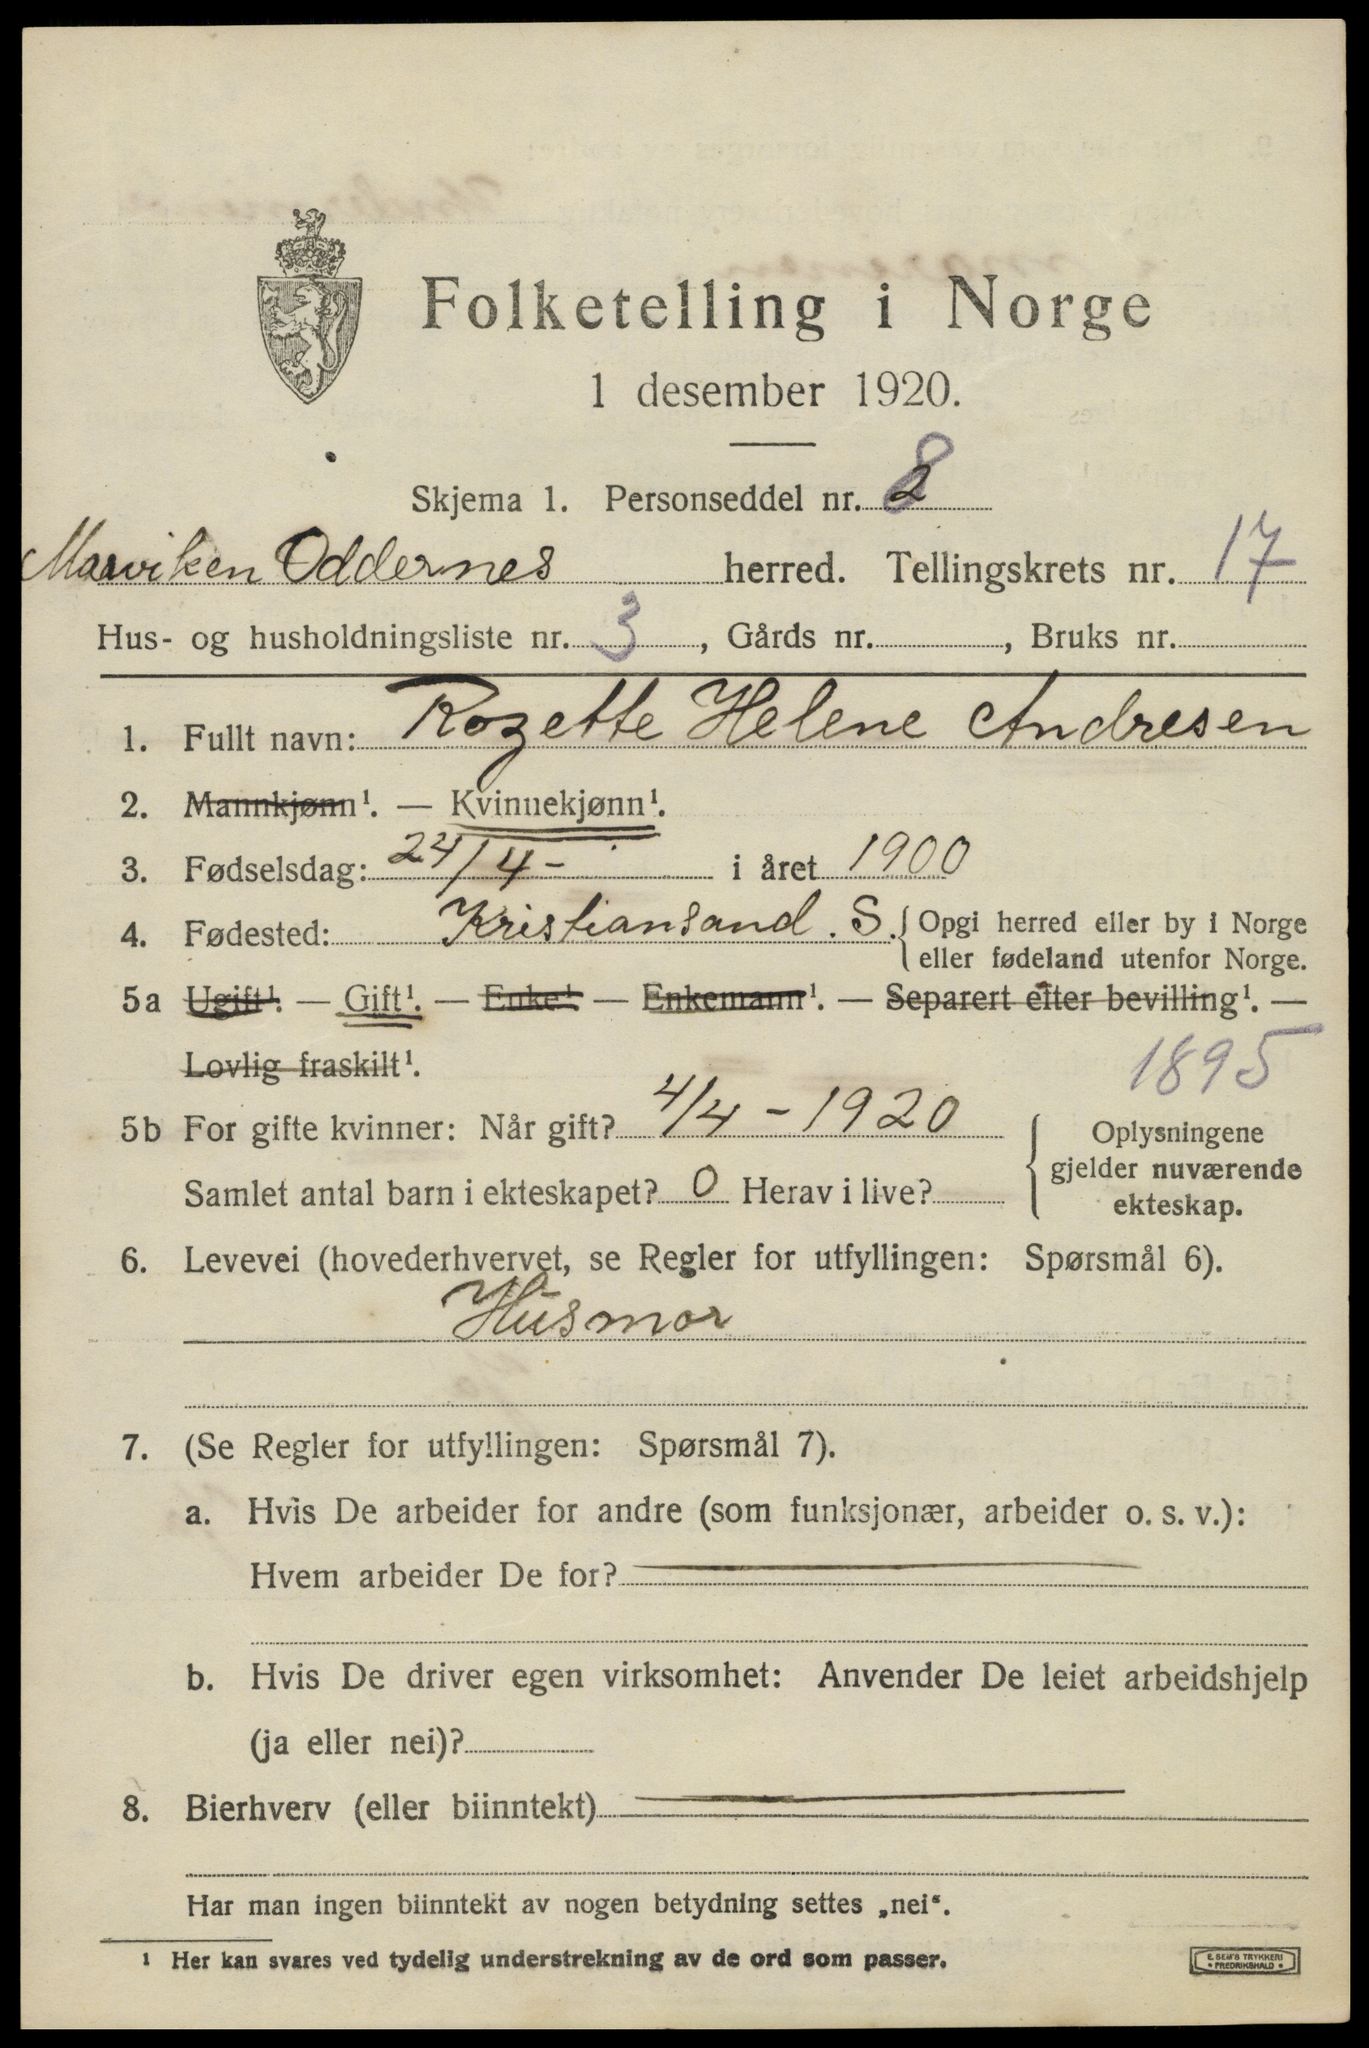 Folketelling i Norge
1 desember 1920.
Skjema 1. Personseddel nr. 8
Marviken Oddernes herred. Tellingskrets nr. 17
Hus- og husholdningsliste nr. 3, Gårds nr. , Bruks nr.
1. Fullt navn: Rozette Helene Andresen
2. Mannkjønn¹. — Kvinnekjønn¹.
3. Fødselsdag: 24/4- i året 1900
4. Fødested: Kristiansand. S. { Opgi herred eller by i Norge
eller fødeland utenfor Norge.
5a Ugift¹. — Gift¹. — Enke¹ — Enkemann¹. — Separert efter bevilling¹. —
Lovlig fraskilt¹.
1895
5b For gifte kvinner: Når gift? 4/4 - 1920
Samlet antal barn i ekteskapet? 0 Herav i live?
{ Oplysningene
gjelder nuværende
ekteskap.
6. Levevei (hovederhvervet, se Regler for utfyllingen: Spørsmål 6).
Husmor
7. (Se Regler for utfyllingen: Spørsmål 7).
a. Hvis De arbeider for andre (som funksjonær, arbeider o. s. v.):
Hvem arbeider De for?
b. Hvis De driver egen virksomhet: Anvender De leiet arbeidshjelp
(ja eller nei)?
8. Bierhverv (eller biinntekt)
Har man ingen biinntekt av nogen betydning settes „nei“.
¹ Her kan svares ved tydelig understrekning av de ord som passer.
E. SEM'S TRYKKERI
• FREDRIKSHALD •